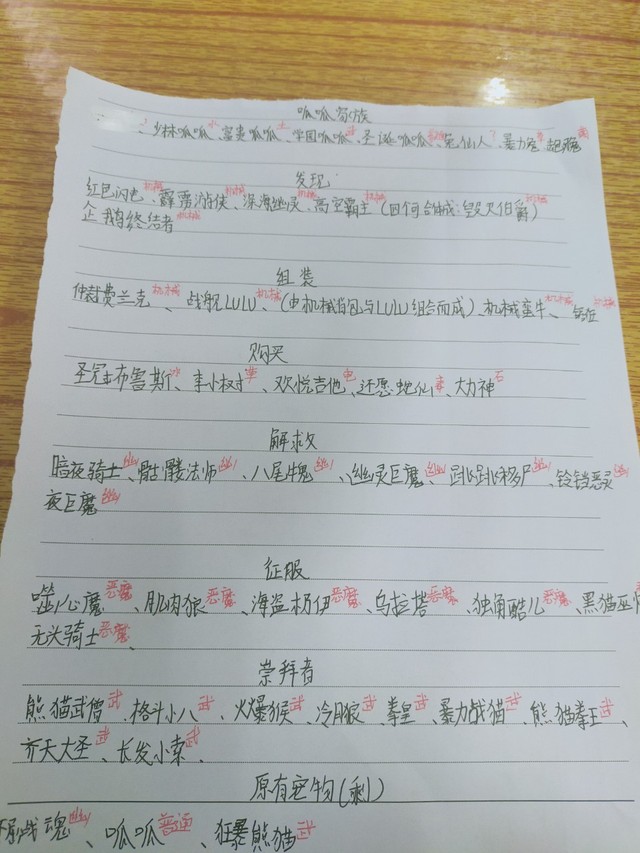 呱呱家族
少林呱呱水、富贵呱呱土、学园呱呱武、圣诞呱呱、兔仙人?、暴力兔
发现
红色闪电机械、霹雳游侠机械、深海幽灵机械、高空霸主机械(四何合成:毁灭伯爵机械)
企鹅终结者机械
组装
仲裁费兰克机械、战舰LULU机械、(由机械背包与LULU组合而成)、机械蛮牛机械、机械
购买
圣冠布鲁斯冰、李小树草、欢悦吉他电、还愿蛇仙草、大力神石
解救
暗夜骑士幽、骷髅法师幽、八尾牛鬼幽、幽灵巨魔幽、跳跳移尸幽、铃铛恶灵幽
夜巨魔幽
征服
噬心魔恶魔、肌肉狼恶魔、海盗杨伊恶魔、乌拉塔恶魔、独角酷儿恶魔、黑猫巫师
无头骑士恶魔、
崇拜者
熊猫武僧武、格斗小八武、火爆猴武、冷月狼武、拳皇武、暴力战猫武、熊猫拳王武、
齐天大圣武、长发小索武、
原有宠物(剩)
战魂幽、呱呱普通、狂暴熊猫武